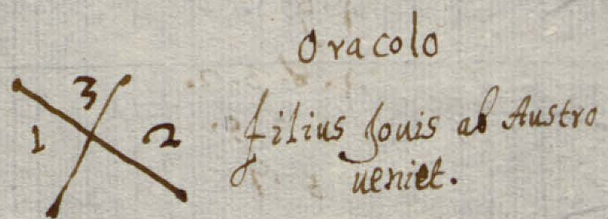 Oracolo
3
1 2 filius Jouis ab Austro
ueniet.